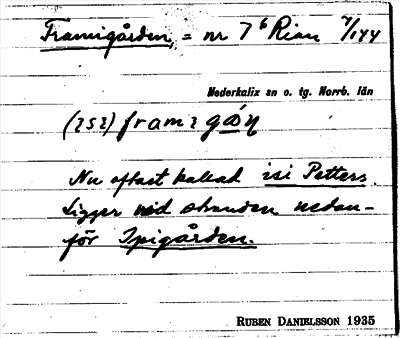 Framigården, = nr 7⁶ Rian 7/144
Nederkalix sn o. tg. Norrb. län
Nu oftast kallad isi Petters.
Ligger vid stranden nedan-
för Ipigården.
RUBEN DANIELSSON 1935